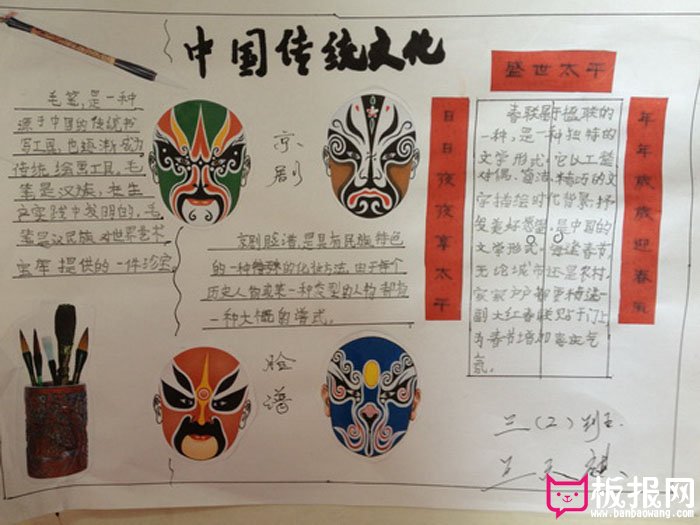 中国传统文化
毛笔,是一种
源于中国的传统书
写工具,也逐渐成为
传统绘画工具,毛
笔是汉族
发明的,毛
笔是汉民族对世界艺术
宝库提供的一件珍宝
京剧
京剧脸谱,是具有民族特色
的一种特殊的化妆方法,由于每个
历史人物或某一种类型的人物都有
一种大概的谱式.
脸谱
盛世太平
日日夜夜享太平
春联属于楹联的
一种,是一种独特的
文学形式,它以工整
对偶、简洁、精巧的文
字描绘时代背景,抒
发美好愿望,是中国的
文学形式,每逢春节,
无论城市还是农村,
家家户户都要
副大红春联贴于门上
为春节增加喜庆气
氛.
年年岁岁迎春风
三(2)班
板报网
www.banbaowang.com